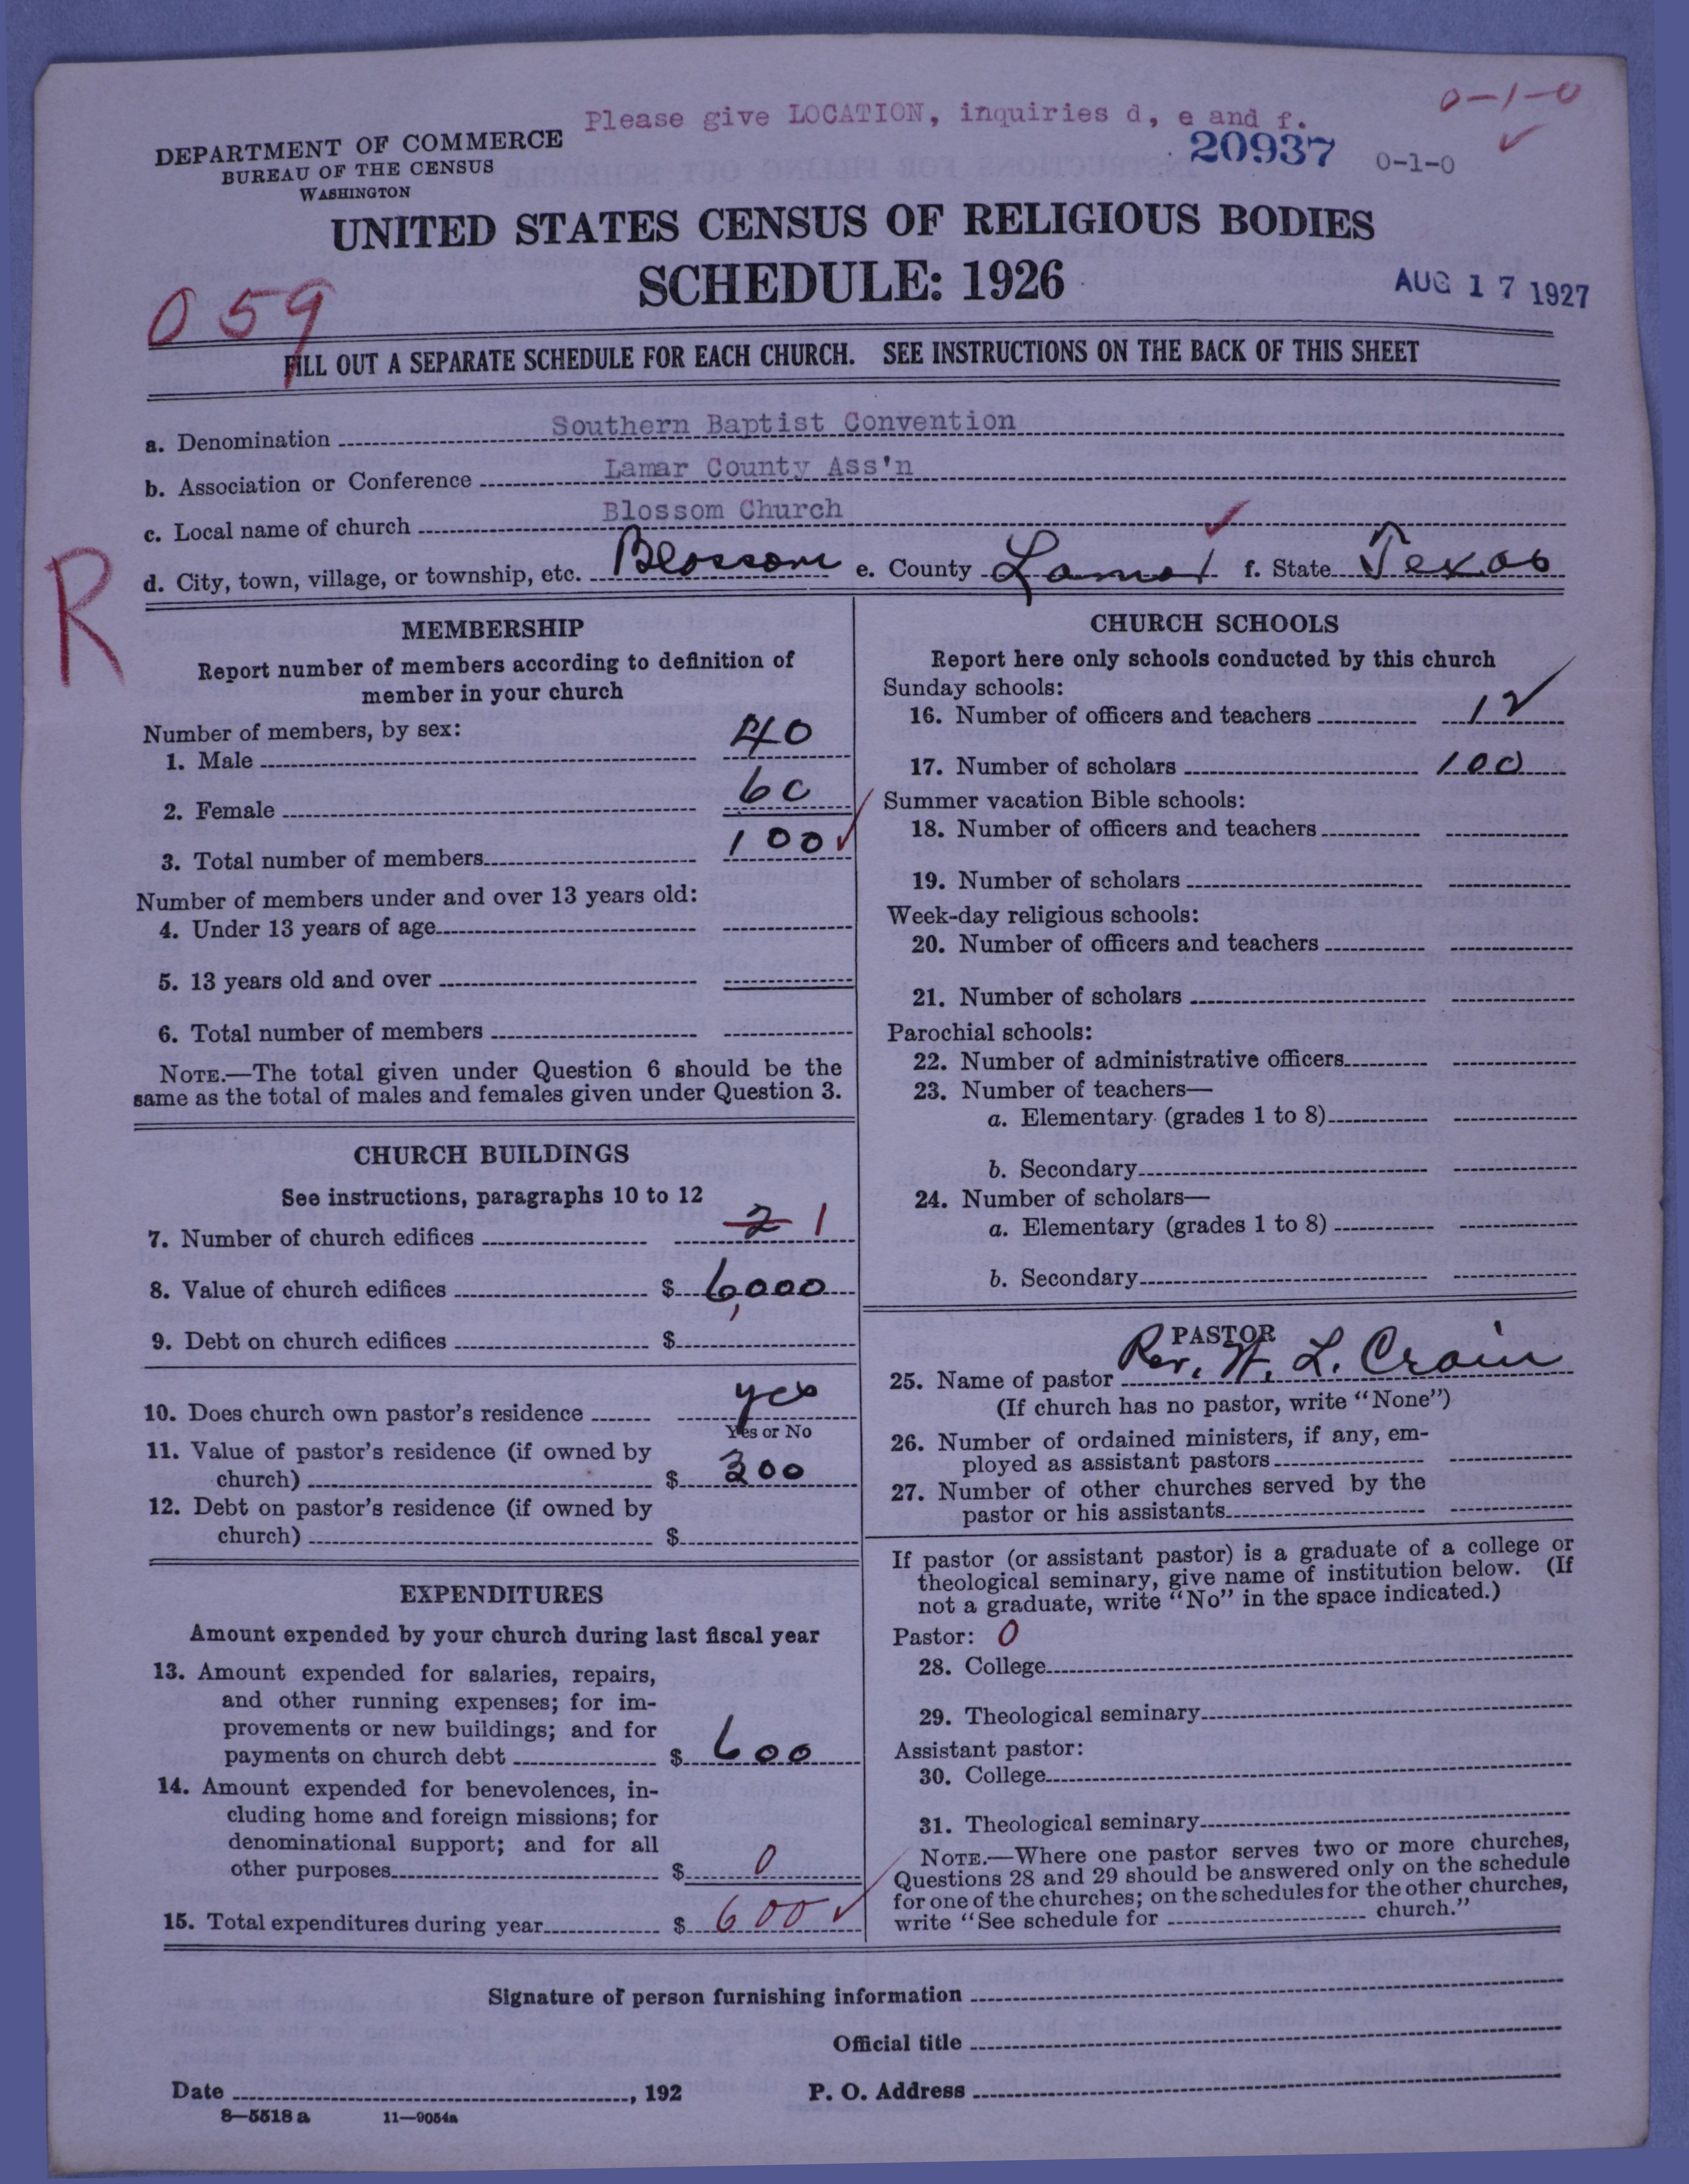 Please give LOCATION, inquiries d, e and f.
0-1-0
DEPARTMENT OF COMMERCE
BUREAU OF THE CENSUS
WASHINGTON
20937 0-1-0
UNITED STATES CENSUS OF RELIGIOUS BODIES
SCHEDULE: 1926
AUG 17 1927
059
FILL OUT A SEPARATE SCHEDULE FOR EACH CHURCH. SEE INSTRUCTIONS ON THE BACK OF THIS SHEET
a. Denomination Southern Baptist Convention
b. Association or Conference Lamar County Ass'n
c. Local name of church Blossom Church
d. City, town, village, or township, etc. Blossom e. County Lamar f. State Texas
R
MEMBERSHIP
Report number of members according to definition of
member in your church
Number of members, by sex:
1. Male 40
2. Female 60
3. Total number of members 100
Number of members under and over 13 years old:
4. Under 13 years of age
5. 13 years old and over
6. Total number of members
NOTE.—The total given under Question 6 should be the
same as the total of males and females given under Question 3.
CHURCH BUILDINGS
See instructions, paragraphs 10 to 12
7. Number of church edifices 2 1
8. Value of church edifices $ 6,000
9. Debt on church edifices $
10. Does church own pastor's residence yes
Yes or No
11. Value of pastor's residence (if owned by
church) $ 300
12. Debt on pastor's residence (if owned by
church) $
EXPENDITURES
Amount expended by your church during last fiscal year
13. Amount expended for salaries, repairs,
and other running expenses; for im-
provements or new buildings; and for
payments on church debt $ 600
14. Amount expended for benevolences, in-
cluding home and foreign missions; for
denominational support; and for all
other purposes $ 0
15. Total expenditures during year $ 600
CHURCH SCHOOLS
Report here only schools conducted by this church
Sunday schools:
16. Number of officers and teachers 12
17. Number of scholars 100
Summer vacation Bible schools:
18. Number of officers and teachers
19. Number of scholars
Week-day religious schools:
20. Number of officers and teachers
21. Number of scholars
Parochial schools:
22. Number of administrative officers
23. Number of teachers—
a. Elementary (grades 1 to 8)
b. Secondary
24. Number of scholars—
a. Elementary (grades 1 to 8)
b. Secondary
PASTOR
25. Name of pastor Rev. W. L. Crain
(If church has no pastor, write "None")
26. Number of ordained ministers, if any, em-
ployed as assistant pastors
27. Number of other churches served by the
pastor or his assistants
If pastor (or assistant pastor) is a graduate of a college or
theological seminary, give name of institution below. (If
not a graduate, write "No" in the space indicated.)
Pastor: 0
28. College
29. Theological seminary
Assistant pastor:
30. College
31. Theological seminary
NOTE.—Where one pastor serves two or more churches,
Questions 28 and 29 should be answered only on the schedule
for one of the churches; on the schedules for the other churches,
write "See schedule for church."
Signature of person furnishing information
Official title
Date , 192 P. O. Address
8—5518 a 11—9054a